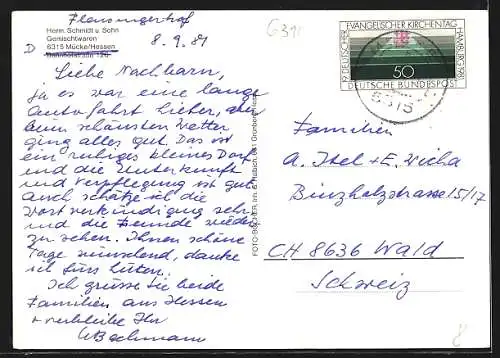 Flensungerhof
Herm. Schmidt u. Sohn
Gemischtwaren
6315 Mücke/Hessen
Bahnhofstraße 126
D
8.9.81
Liebe Nachbarn,
ja es war eine lange
Autofahrt hieher, aber
beim schönsten Wetter
ging alles gut. Das ist
ein ruhiges kleines Dorf
und die Unterkunft
und Verpflegung ist gut
Auch schätze ich die
Wortverkündigung sehr
und die Freunde wieder
zu sehen. Ihnen schöne
Tage wünschend, danke
ich fürs hüten.
Ich grüsse Sie beide
Familien aus Hessen
+ verbleibe Ihr
Bachmann
19. DEUTSCHER EVANGELISCHER KIRCHENTAG
HAMBURG 1981
50
DEUTSCHE BUNDESPOST
6315
Familien
A. Itel + E. Wicha
Binzholzstrasse 15/17
CH 8636 Wald
Schweiz